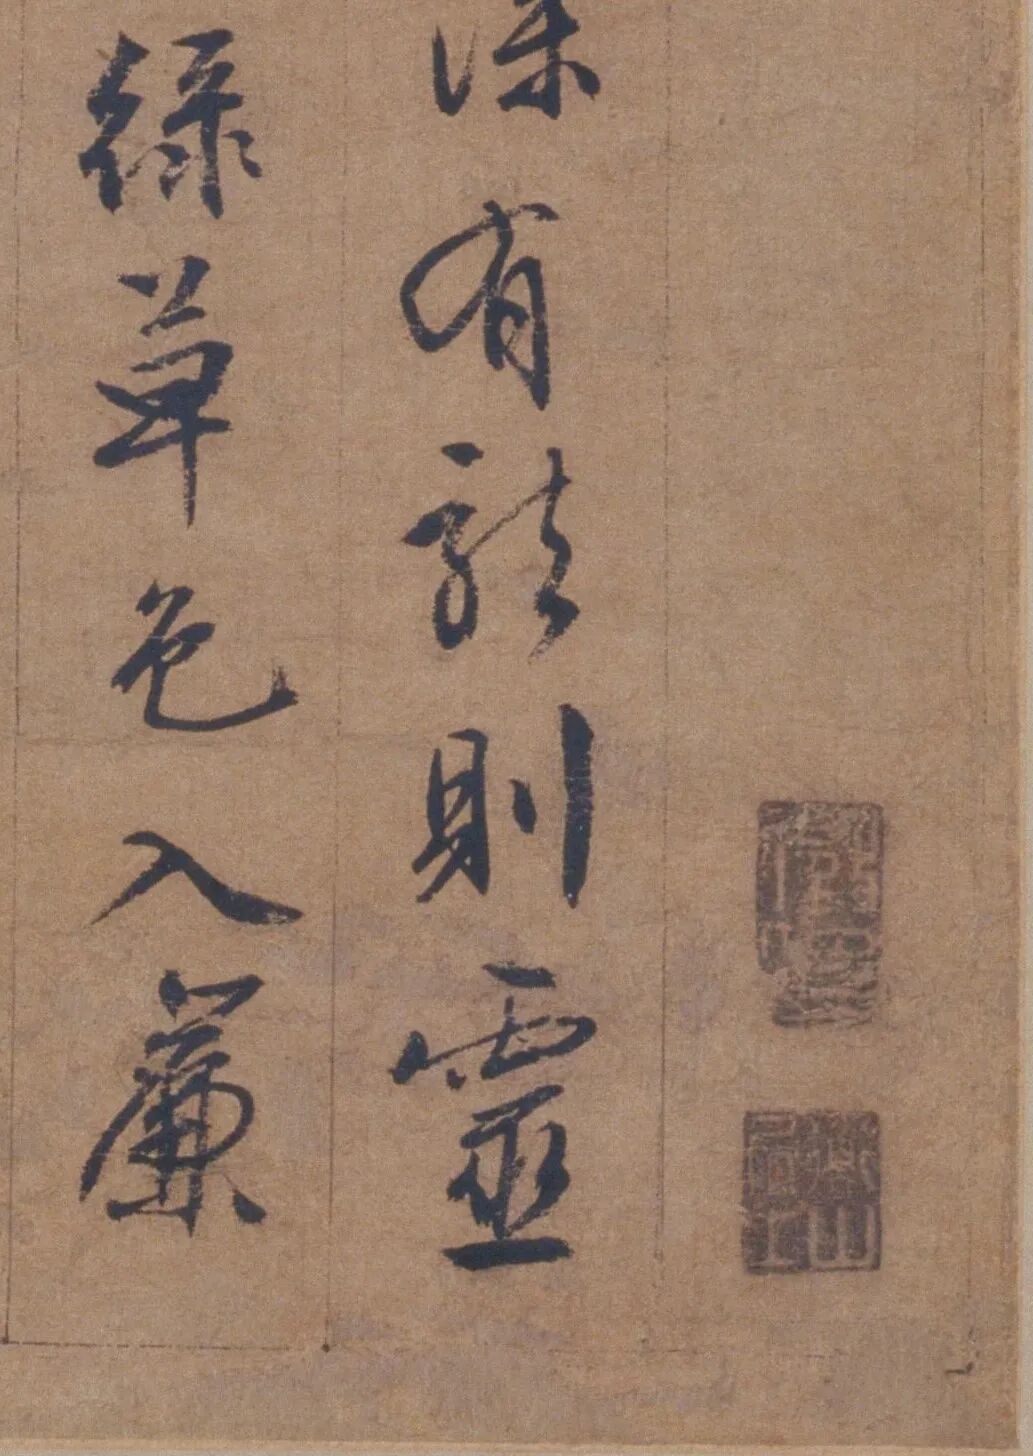 深有龍則靈
綠草色入簾